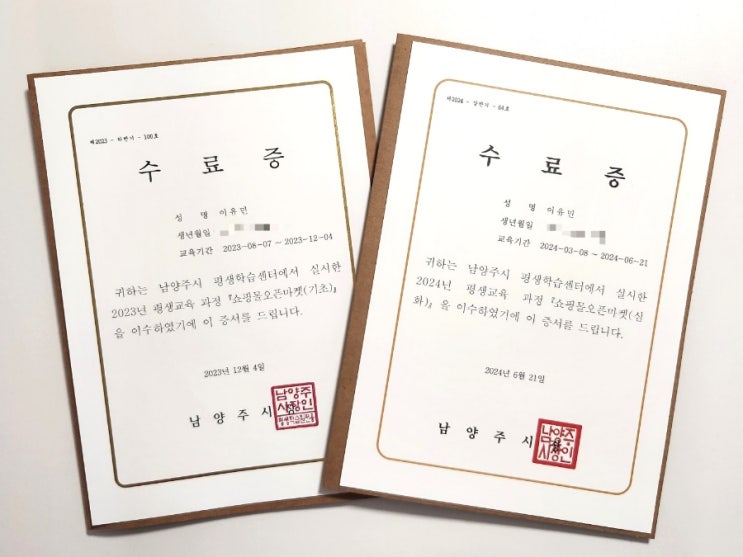 제2023 - 하반기 - 100호
수 료 증
성 명 이유민
생년월일
교육기간 2023-08-07 ~ 2023-12-04
귀하는 남양주시 평생학습센터에서 실시한
2023년 평생교육 과정 『쇼핑몰오픈마켓(기초)』
을 이수하였기에 이 증서를 드립니다.
2023년 12월 4일
남 양 주 시 장
남양주
시장인
제2024 - 상반기 - 64호
수 료 증
성 명 이유민
생년월일
교육기간 2024-03-08 ~ 2024-06-21
귀하는 남양주시 평생학습센터에서 실시한
2024년 평생교육 과정 『쇼핑몰오픈마켓(심
화)』을 이수하였기에 이 증서를 드립니다.
2024년 6월 21일
남 양 주 시 장
남양주
시장인